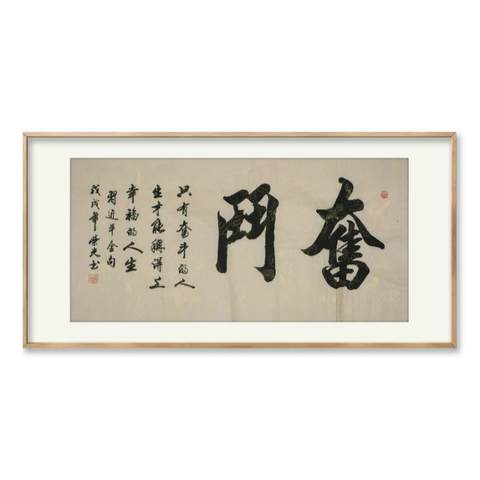 奮鬥
只有奮斗的人
生才能稱得上
幸福的人生
習近平金句
戊戌年榮光书